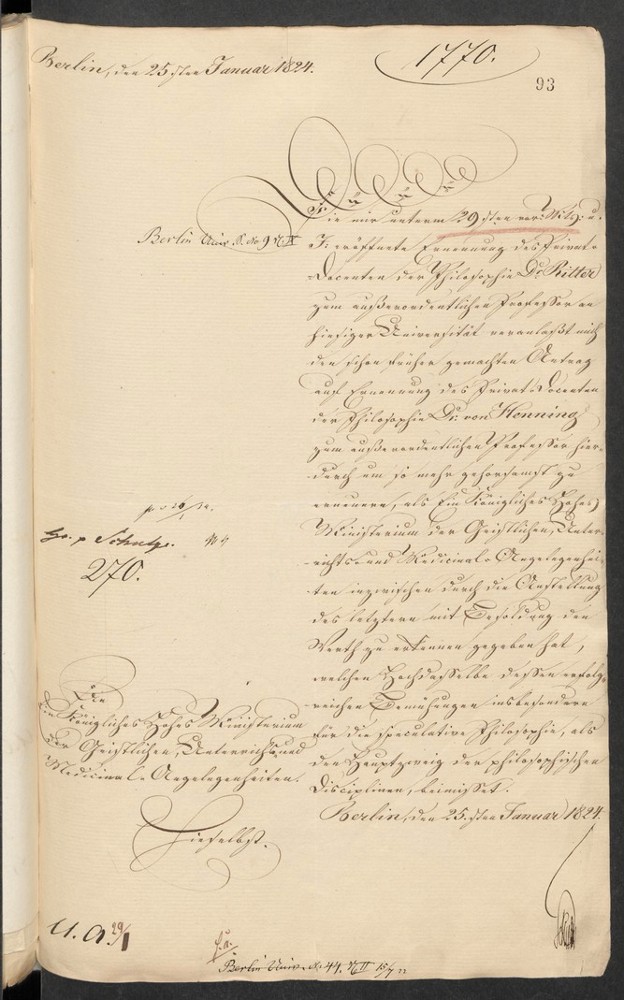 Berlin, den 25. sten Januar 1824.
1770.
93
Die mir unterm 29 sten vor: Mts: u.
Berlin Univ. S. No 9
J: eröffnete Ernennung des Privat-
Docenten der Philosophie Dr. Ritter
zum außerordentlichen Professor an
hiesiger Universität veranlaßt mich
den schon früher gemachten Antrag
auf Ernennung des Privat-Docenten
der Philosophie Dr. von Henning
zum außerordentlichen Professor hier-
durch um so mehr gehorsamst zu
erneuern, als Ein Königliches Hohes
Ministerium der Geistlichen, Unter-
richts- und Medicinal-Angelegenhei-
ten inzwischen durch die Anstellung
des letztern mit Besoldung den
Werth zu erkennen gegeben hat,
welchen Hochdasselbe dessen erfolg-
reichen Bemühungen insbesondere
für die speculative Philosophie, als
den Hauptzweig der philosophischen
Disciplinen, beimisset.
Berlin, den 25. sten Januar 1824.
H. p Schulze.
270.
An
Ein Königliches Hohes Ministerium
der Geistlichen, Unterrichts und
Medicinal-Angelegenheiten.
Hieselbst.
U. A. 29/1
Berlin Univ. No 44.